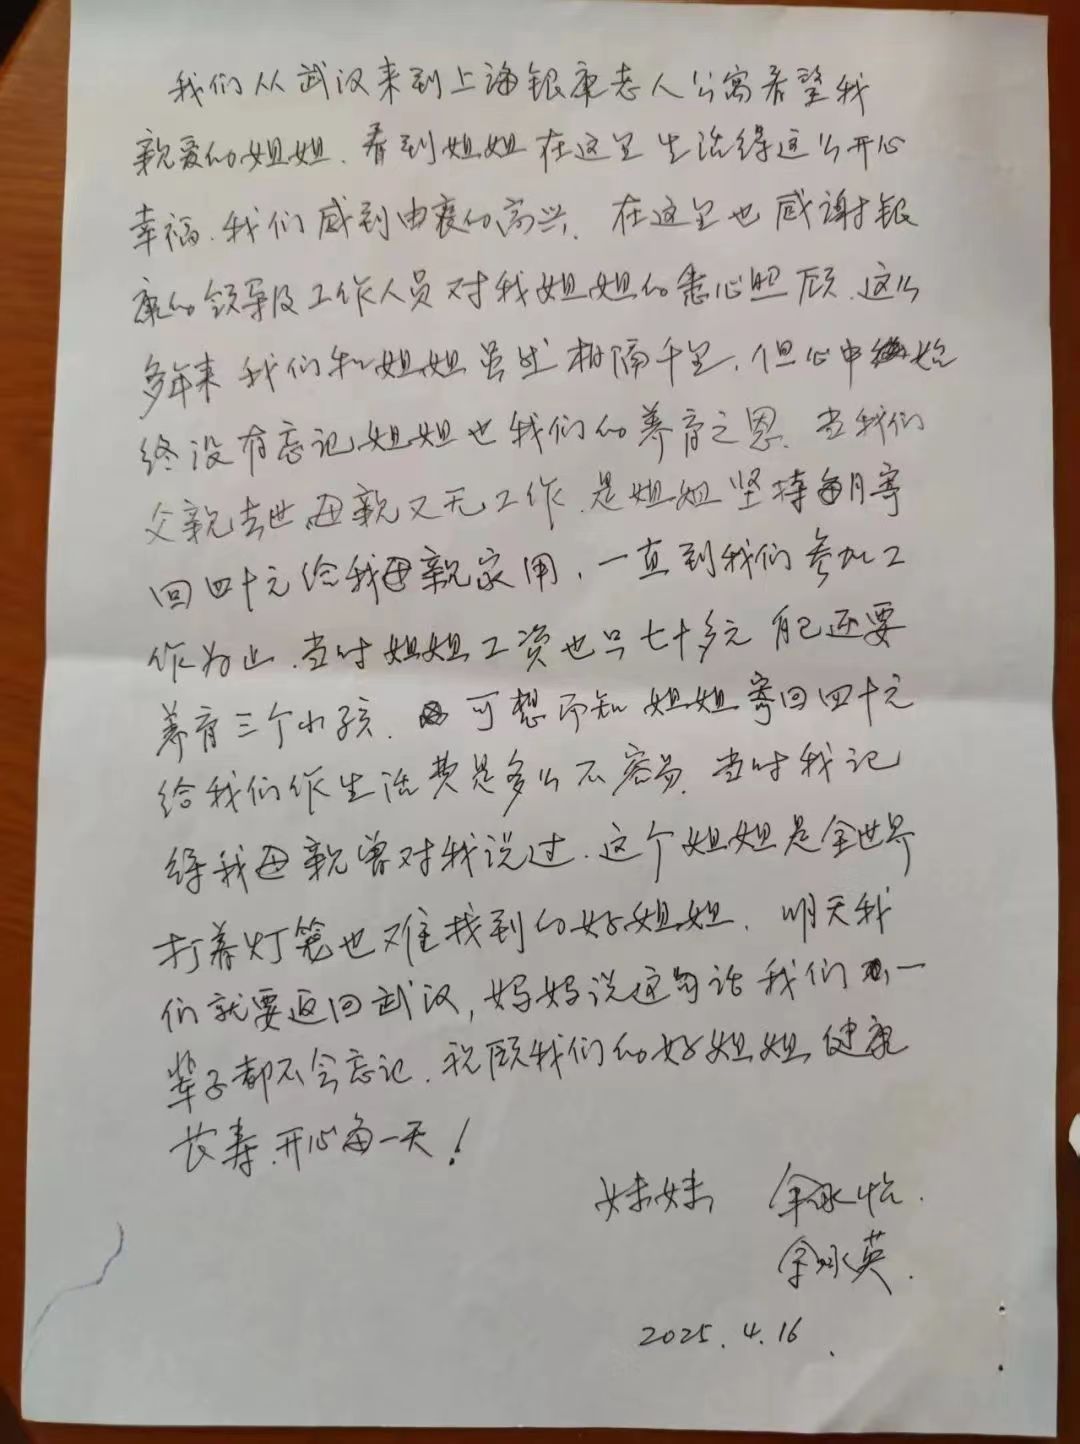 我们从武汉来到上海银康老人公寓看望我
亲爱的姐姐.看到姐姐在这里生活得这么开心
幸福.我们感到由衷的高兴.在这里也感谢银
康的领导及工作人员对我姐姐的悉心照顾.这么
多年来我们和姐姐虽然相隔千里.但心中始
终没有忘记姐姐也我们的养育之恩.当我们
父亲去世母亲又无工作.是姐姐坚持每月寄
回四十元给我母亲家用,一直到我们参加工
作为止.当时姐姐工资也只七十多元自己还要
养育三个小孩.可想而知姐姐寄回四十元
给我们作生活费是多么不容易.当时我记
得我母亲曾对我说过.这个姐姐是全世界
打着灯笼也难找到的好姐姐.明天我
们就要返回武汉,妈妈说这句话我们一
辈子都不会忘记.祝愿我们的好姐姐健康
长寿.开心每一天!
妹妹 余永怡.
余永英.
2025.4.16.